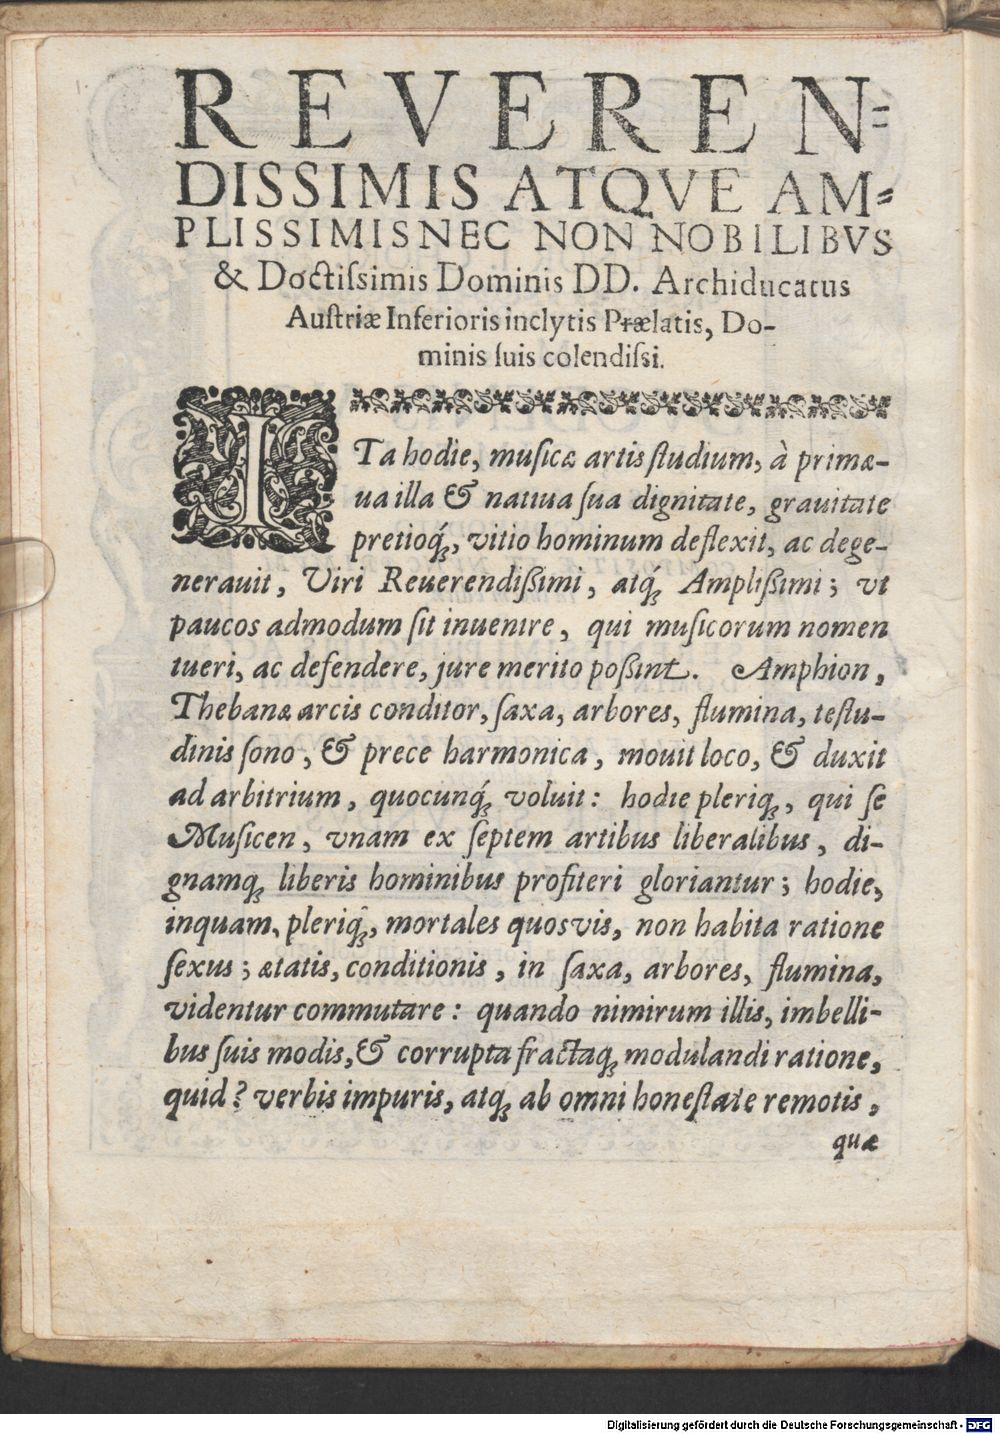 REVEREN=
DISSIMIS ATQVE AM=
PLISSIMIS NEC NON NOBILIBVS
& Doctiſsimis Dominis DD. Archiducatus
Auſtriæ Inferioris inclytis Prælatis, Do-
minis ſuis colendiſsi.
ITa hodie, muſicæ artis ſtudium, à primæ-
ua illa & natiua ſua dignitate, grauitate
pretioq́ꝫ, vitio hominum deflexit, ac dege-
nerauit, Viri Reuerendißimi, atq́ꝫ Amplißimi; vt
paucos admodum ſit inuenire, qui muſicorum nomen
tueri, ac defendere, jure merito poßint. Amphion,
Thebanæ arcis conditor, ſaxa, arbores, flumina, teſtu-
dinis ſono, & prece harmonica, mouit loco, & duxit
ad arbitrium, quocunq́ꝫ voluit: hodie pleriqꝫ, qui ſe
Muſicen, vnam ex ſeptem artibus liberalibus, di-
gnamqꝫ liberis hominibus profiteri gloriantur; hodie,
inquam, pleriq́ꝫ, mortales quosvis, non habita ratione
ſexus; ætatis, conditionis, in ſaxa, arbores, flumina,
videntur commutare: quando nimirum illis, imbelli-
bus ſuis modis, & corrupta fractaqꝫ modulandi ratione,
quid? verbis impuris, atqꝫ ab omni honeſtate remotis,
quæ
Digitalisierung gefördert durch die Deutsche Forschungsgemeinschaft - DFG